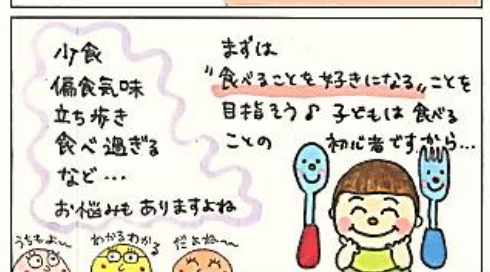 少食
偏食気味
立ち歩き
食べ過ぎる
など…
お悩みもありますよね
まずは
"食べることを好きになる"ことを
目指そう♪ 子どもは 食べる
ことの 初心者ですから…
うちもよ〜
わかるわかる
だよね〜